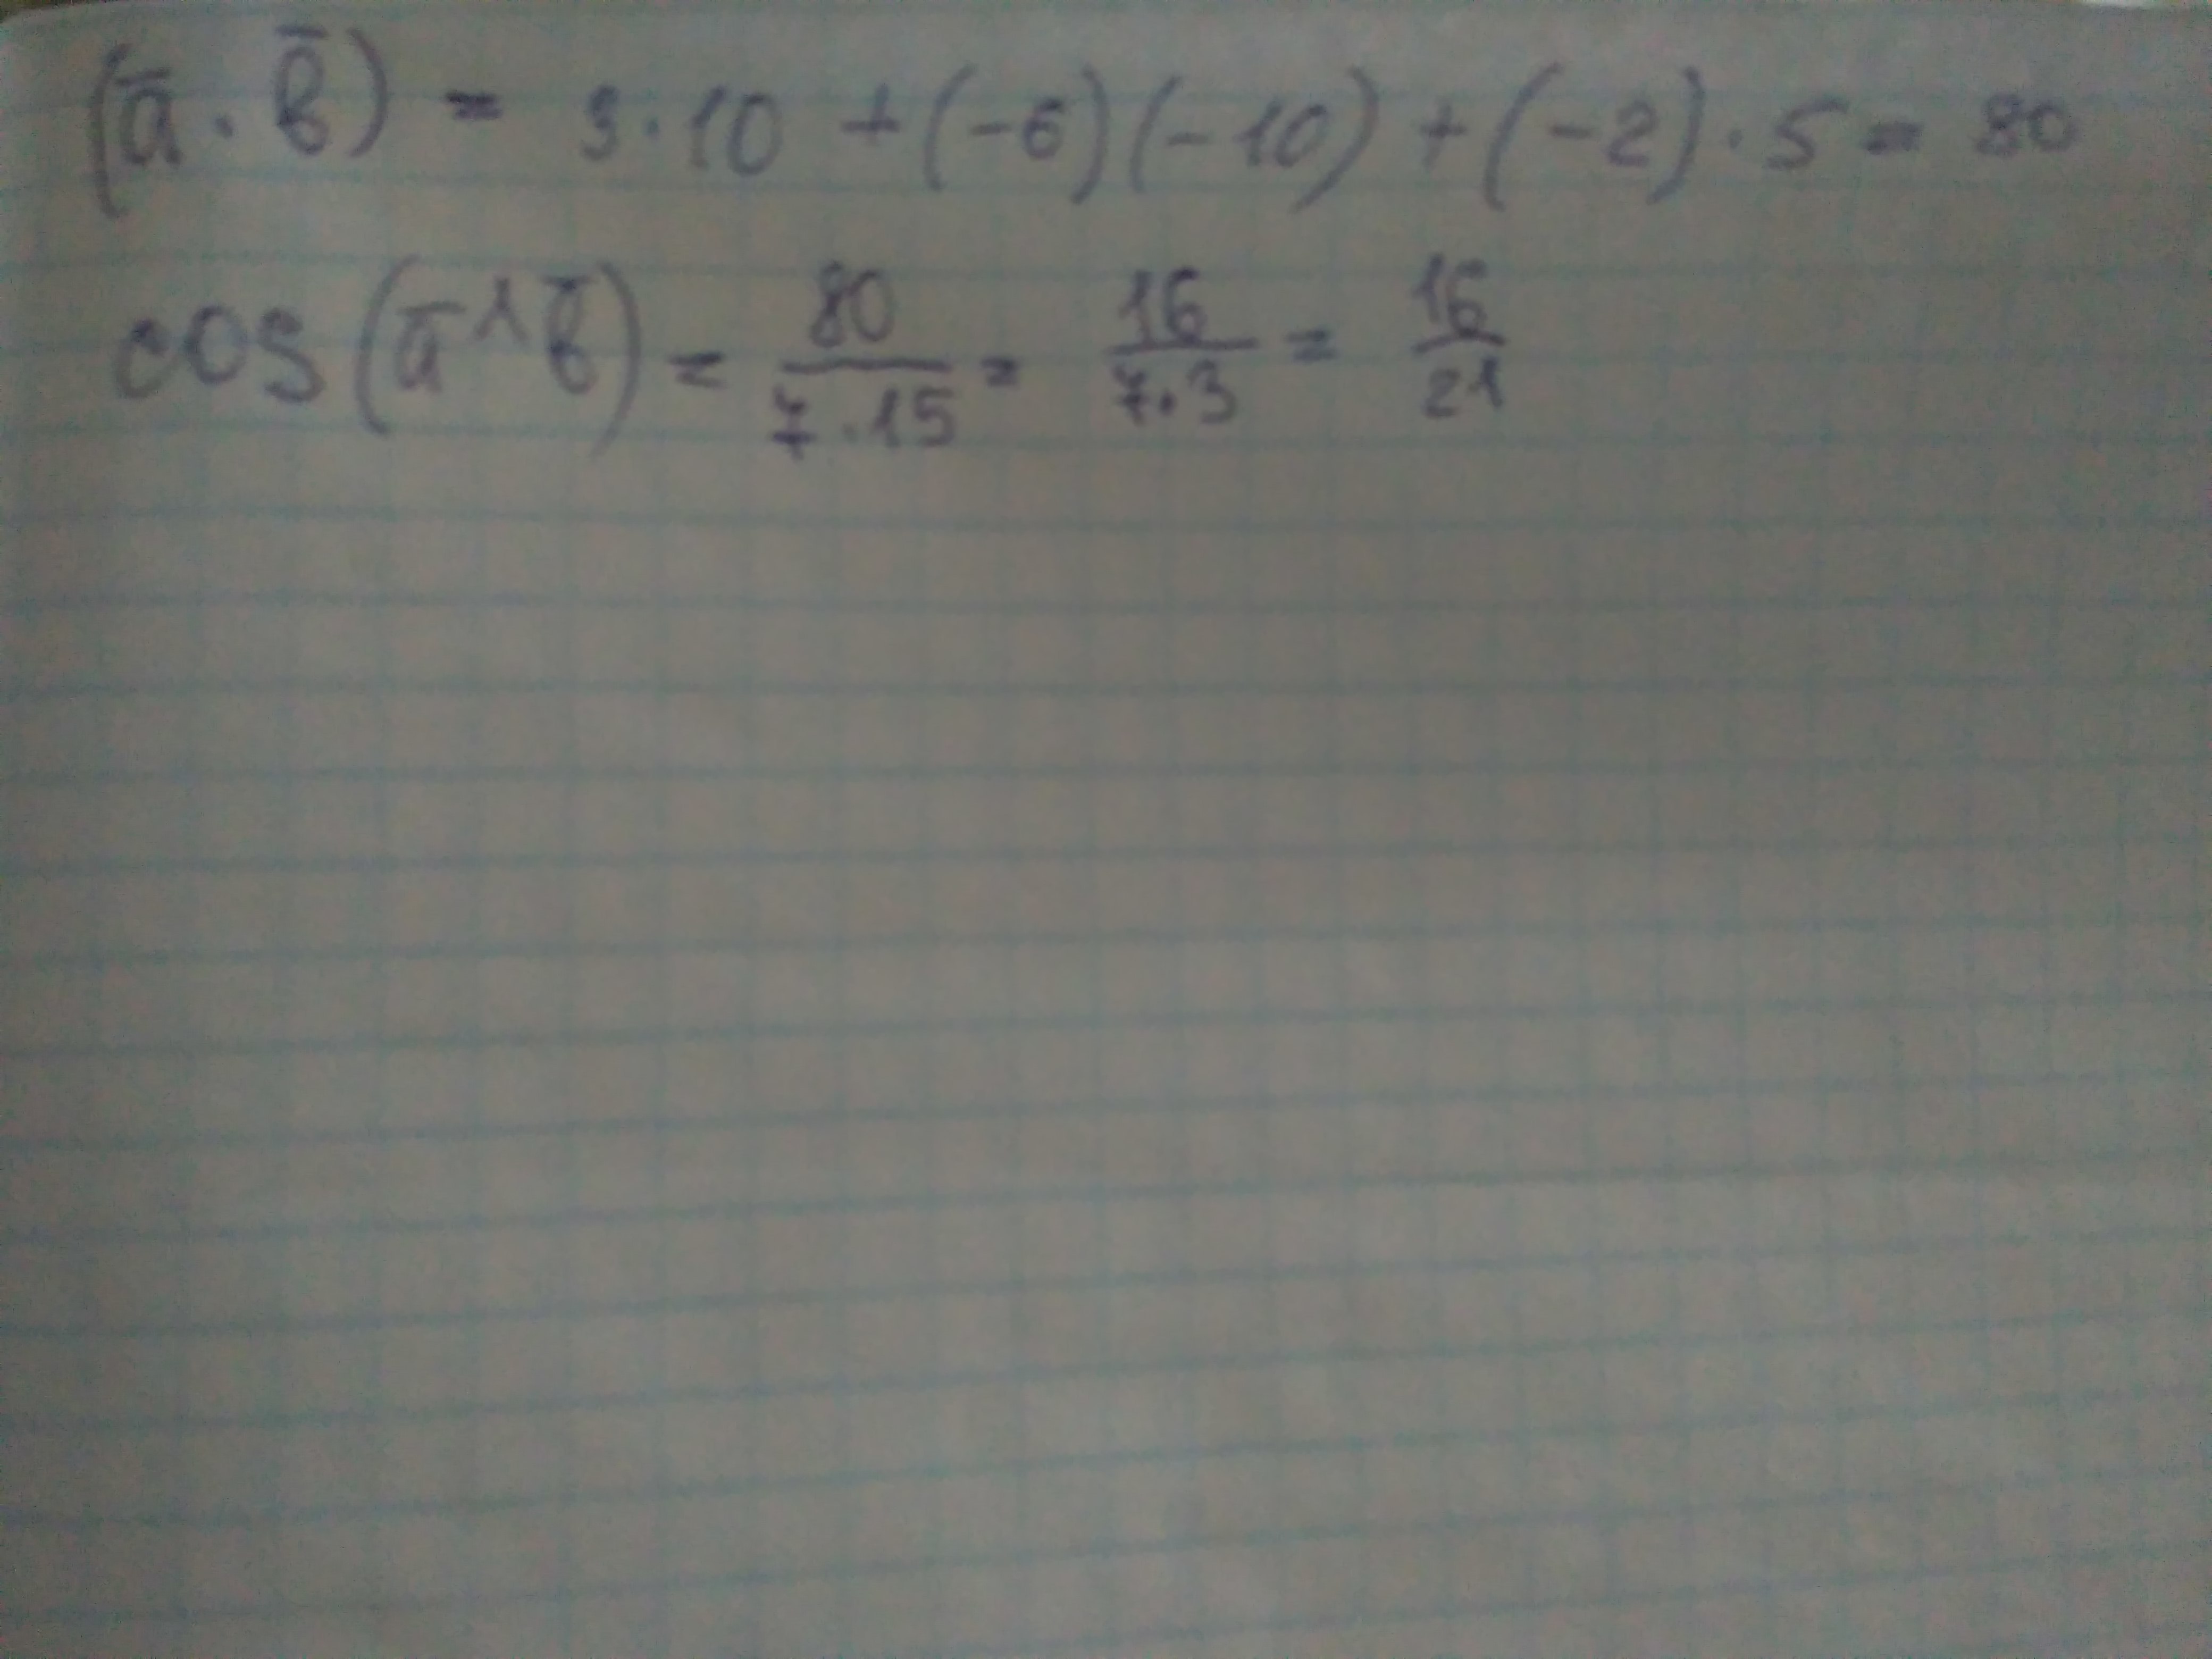 (a̅ · b̅) = 3·10 + (-6)(-10) + (-2)·5 = 80
cos(a̅^b̅) = 80/7·15 = 16/7·3 = 16/21